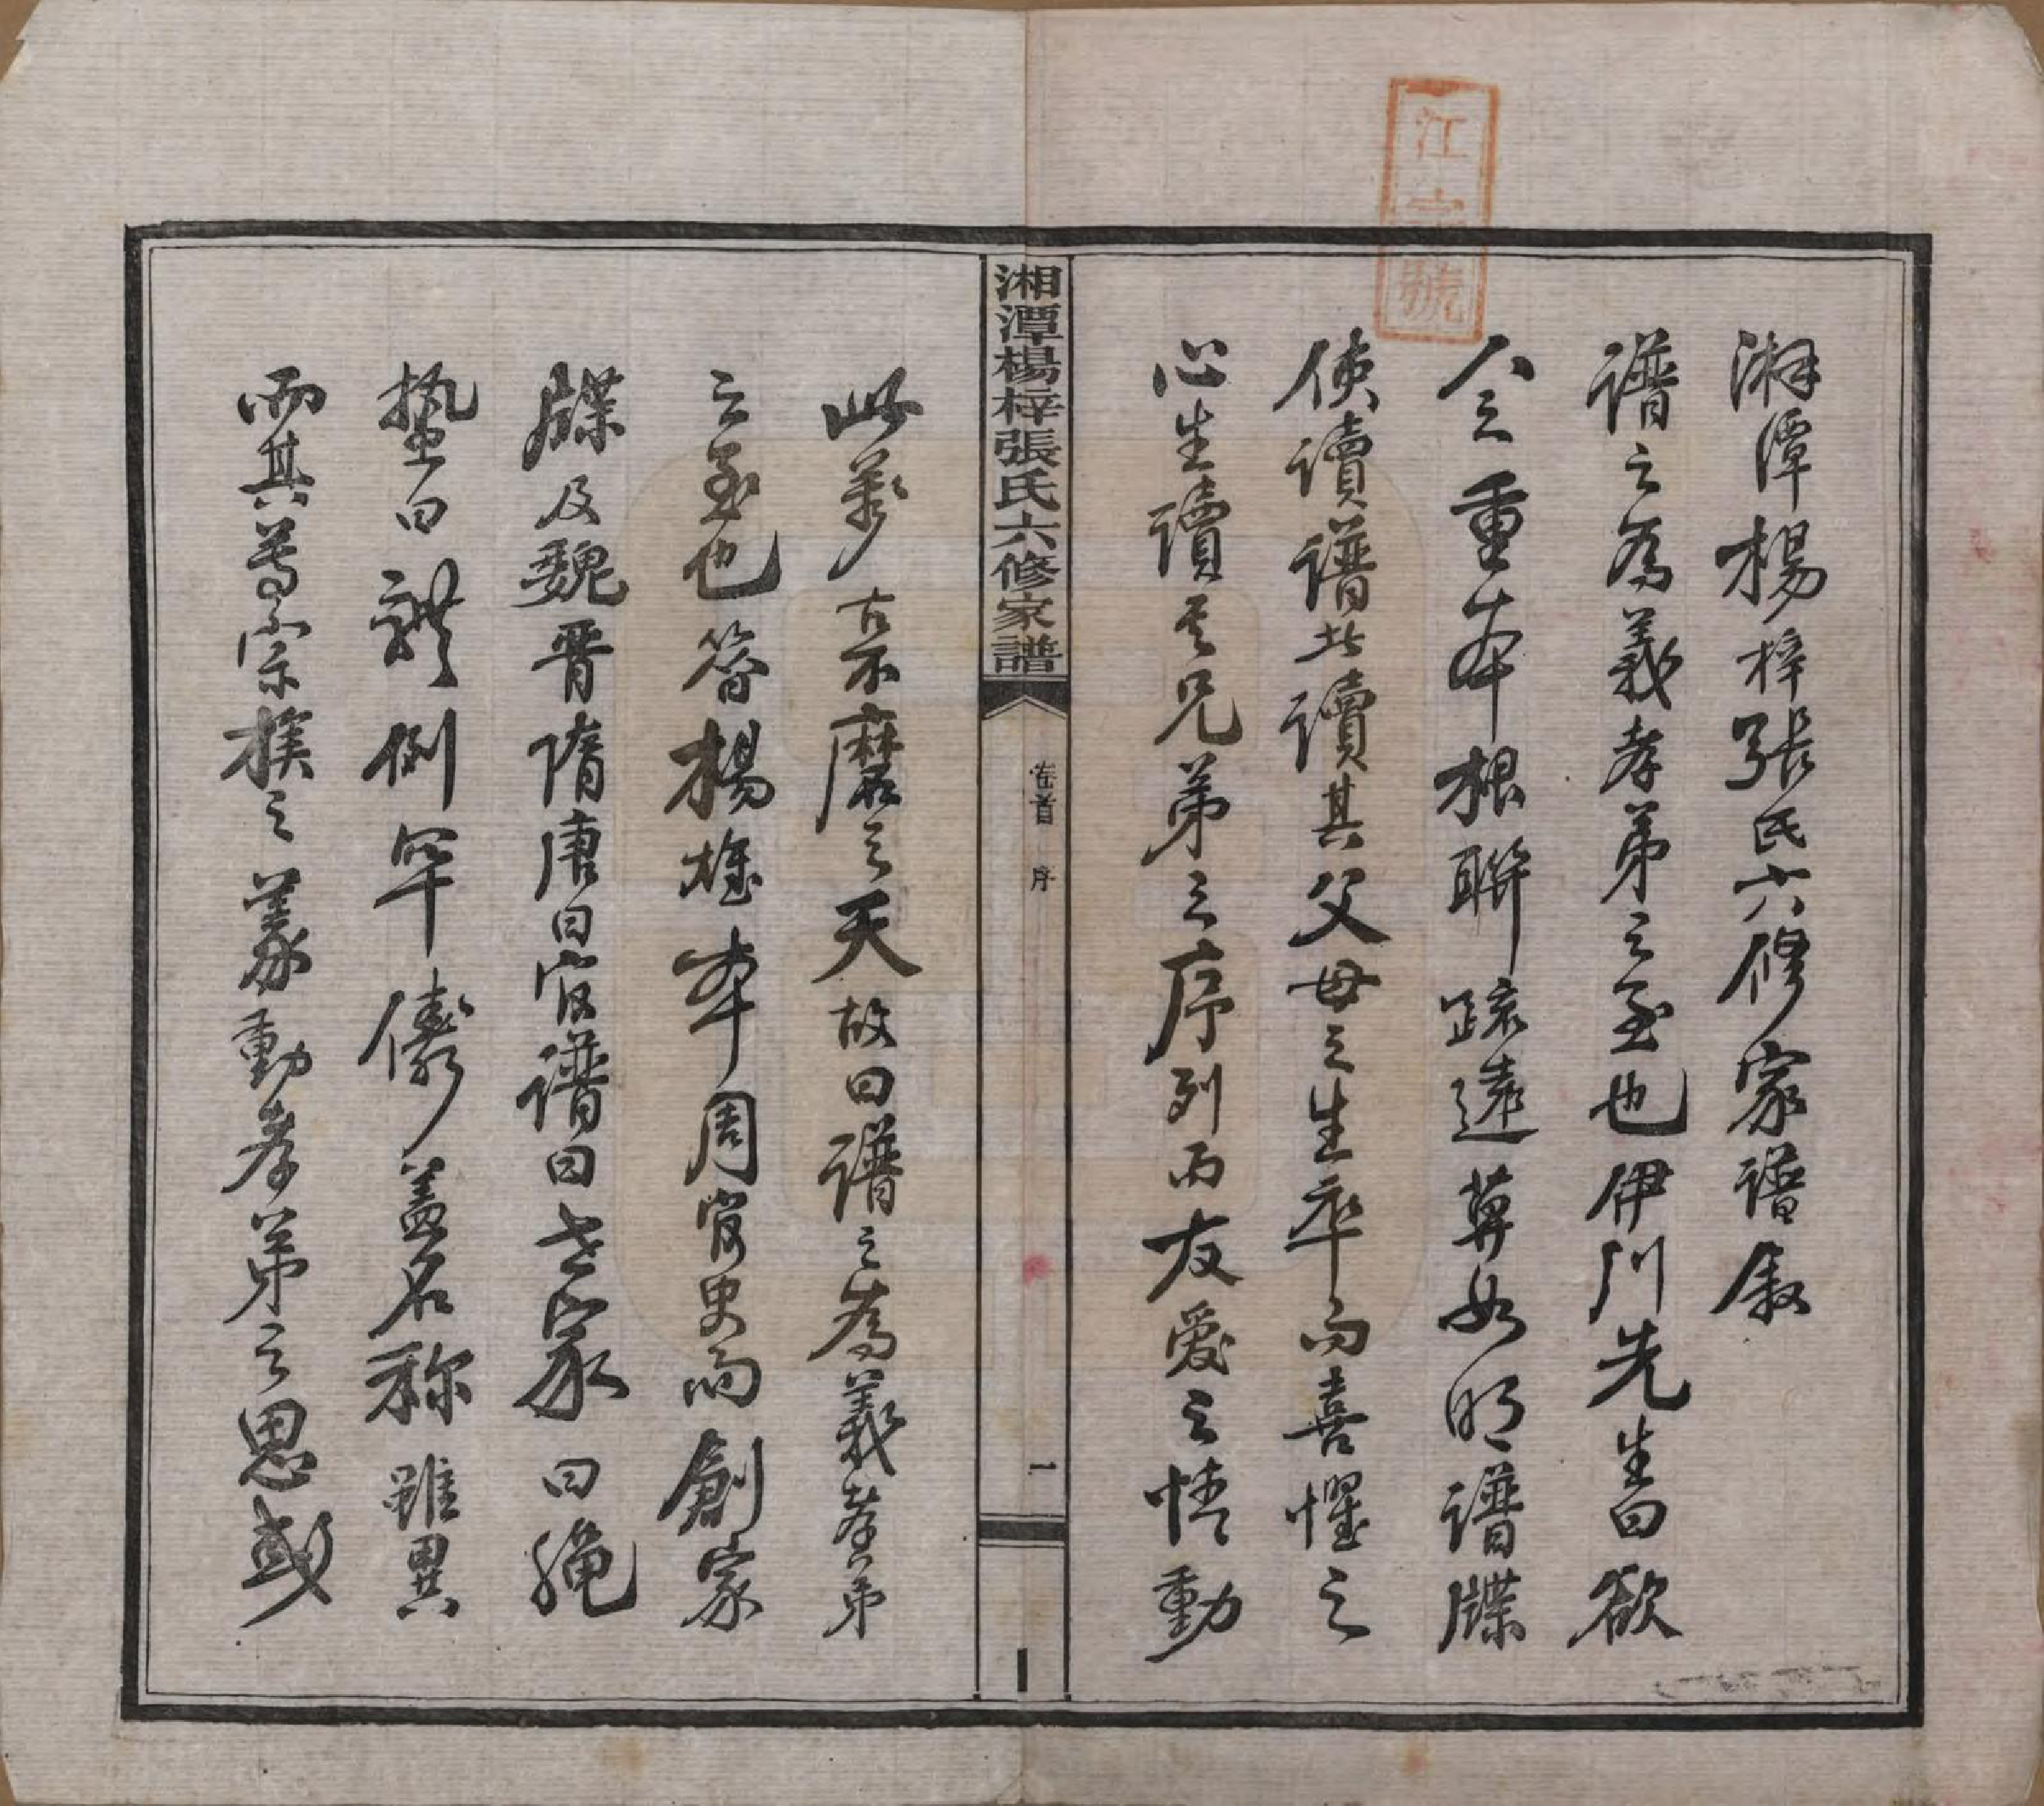 湘潭楊梓張氏六修家譜敘
譜之為義孝弟之至也伊川先生曰欲
人重本根聯疏遠莫如明譜牒
使讀譜者讀其父母之生卒而喜懼之
心生讀其兄弟之序列而友愛之情動
湘潭楊梓張氏六修家譜
卷首
序
一
此萬古不磨之天故曰譜之為義孝弟
之至也簷楊雄本周官史而創家
牒及魏晉隋唐曰官譜曰世家曰繩
蟄曰雜例罕儀蓋名稱雖異
而其尊宗族之義動孝弟之思或
江字號